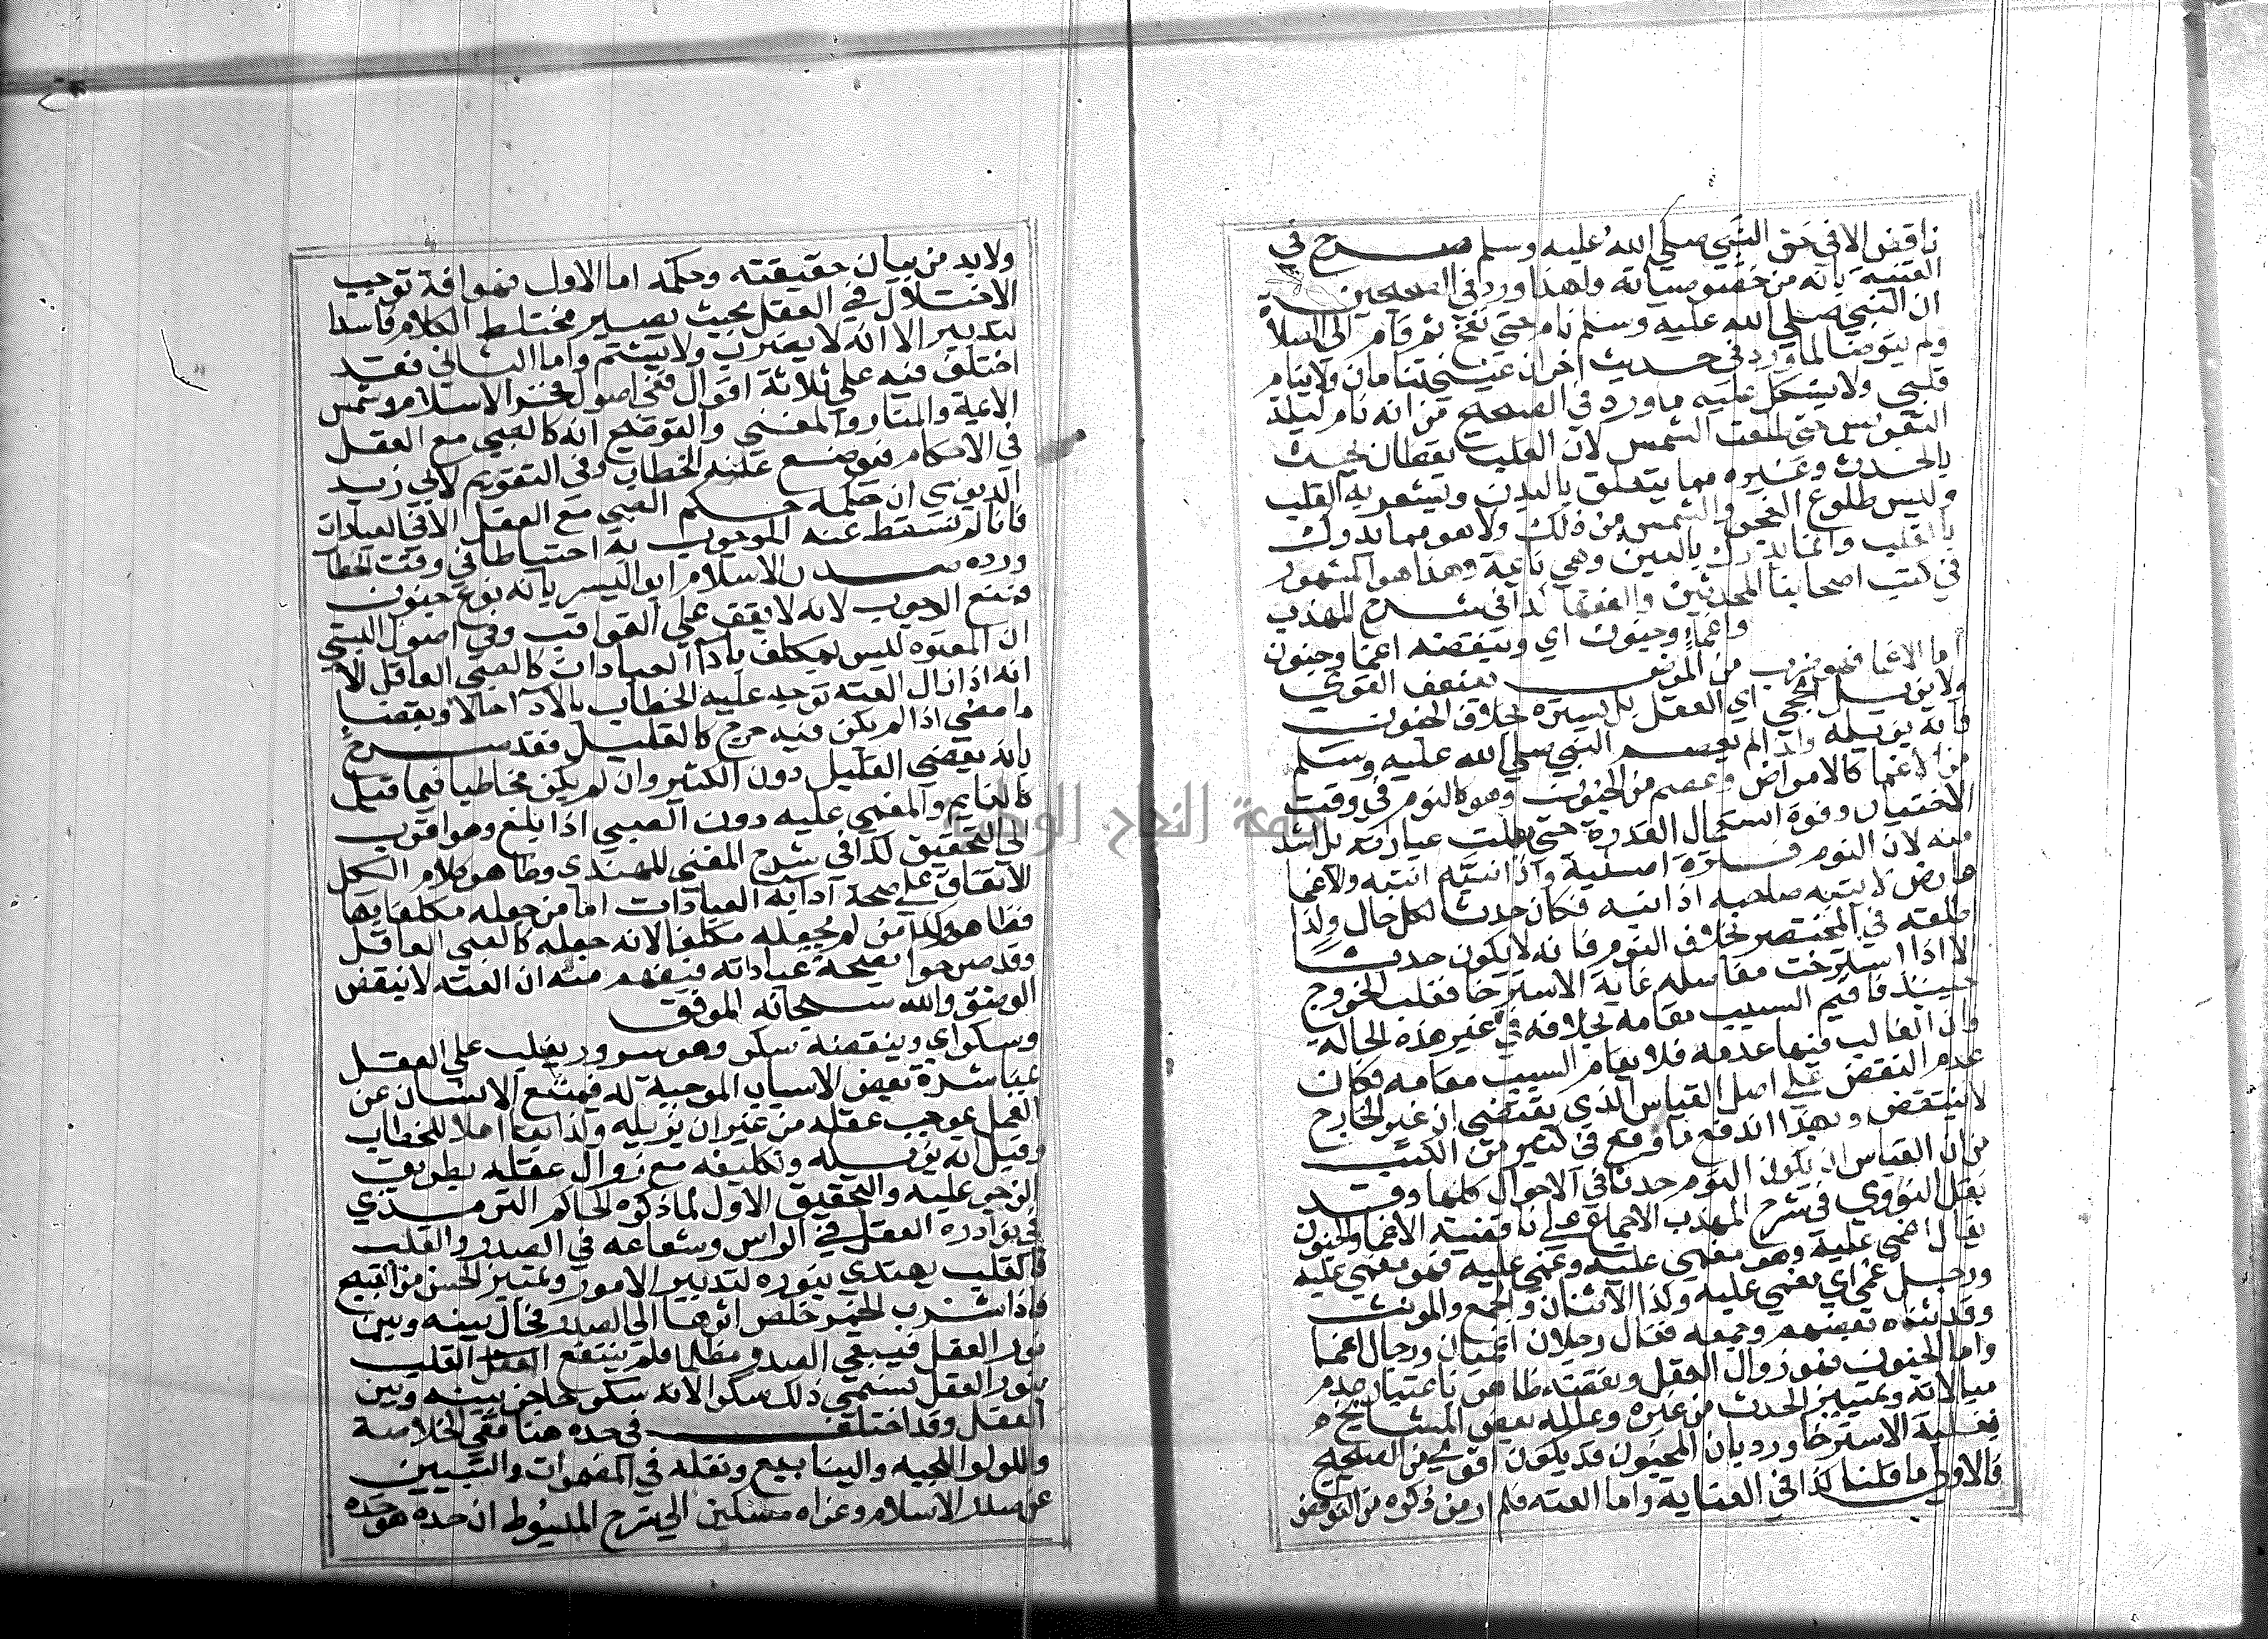 ناقض الا في حق النبي صلى الله عليه وسلم صرح في
القنية بانه من خصوصياته ولهذا ورد في الصحيحين
ان النبي صلى الله عليه وسلم نام حتى نفخ ثم قام الى الصلاة
ولم يتوضا لما ورد في حديث اخر ان عيني تنامان ولا ينام
قلبي ولا يشكل عليه ما ورد في الصحيح من انه نام ليلة
التعريس حتى طلعت الشمس لان القلب يقظان يحس
بالحدث وغيره مما يتعلق بالبدن ويشعر به القلب
وليس طلوع الفجر والشمس من ذلك ولا هو مما يدرك
بالقلب وانما يدرك بالعين وهي نائمة وهذا هو المشهور
في كتب اصحابنا المحدثين والفقها كذا في شرح المهذب
واغماء وجنون اي وينقضه اغما وجنون
اما الاغما فهو ضرب من المرض يضعف القوي
ولا يزيل الحجي اي العقل بل يستره بخلاف الجنون
فانه يزيله ولذا لم يعصم النبي صلى الله عليه وسلم
من الاغما كالامراض وعصم من الجنون وهو كالنوم في فوت
الاختيار وفوة استعمال القدرة حتى بطلت عباراته بل اشد
منه لان النوم فترة اصلية واذا نبه انتبه والاغما
عارض لا ينتبه صاحبه اذا نبه فكان حدثا لكل حال ولذا
اطلقه في المختصر بخلاف النوم فانه لا يكون حدثا
الا اذا استرخت مفاصله غاية الاسترخا فغلب الخروج
حينئذ فاقيم السبب مقامه بخلافه في غير هذه الحالة
وان الغالب فيها عدمه فلا يقام السبب مقامه فكان
عدم النقض على اصل القياس الذي يقتضي ان غير الخارج
لا ينقض وبهذا اندفع ما وقع في كثير من الكتب
من ان القياس ان يكون النوم حدثا في الاحوال كلها وقد
نقل النووي في شرح المهذب الاجماع على ناقضية الاغما والجنون
يقال اغمي عليه وهو مغمي عليه وغمي عليه فهو مغمي عليه
ورجل غمي اي مغمي عليه وكذا الاثنان والجمع والمونث
وقد ثناه بعضهم وجمعه فقال رجلان اغميان ورجال اغما
واما الجنون فهو زوال العقل ونقضه ظاهر باعتبار عدم
مبالاته وتمييز الحدث من غيره وعلله بعض المشايخ
بغلبة الاسترخا ورد بان المجنون قد يكون اقوي من الصحيح
فالاولى ما قلنا كذا في العناية واما العته فلم ار من ذكره من النواقض
ولابد من بيان حقيقته وحكمه اما الاول فهو افة توجب
الاختلال في العقل بحيث يصير مختلط الكلام فاسد
التدبير الا انه لا يضرب ولا يشتم واما الثاني فقد
اختلف فيه على ثلاثة اقوال ففي اصول فخر الاسلام وشمس
الايمة والمنار والمغني والتوضيح انه كالصبي مع العقل
في الاحكام فيوضع عنه الخطاب وفي التقويم لابي زيد
الدبوسي ان حكمه حكم الصبي مع العقل الا في العبادات
فانا لم نسقط عنه الوجوب به احتياطا في وقت الخطاب
ورده صدر الاسلام ابو اليسر بانه نوع جنون
فمنع الوجوب لانه لا يقف على العواقب وفي اصول البستي
ان المعتوه ليس بمكلف بادا العبادات كالصبي العاقل الا
انه اذا زال العته توجه عليه الخطاب بالادا حالا وبقضا
ما مضي اذا لم يكن فيه حرج كالقليل فقد صرح
بانه يقضي القليل دون الكثير وان لم يكن مخاطبا فيما قبل
كالنايم والمغمي عليه دون الصبي اذا بلغ وهو اقرب
الي التحقيق كذا في شرح المغني للهندي وظاهر كلام الكل
الاتفاق على صحة ادايه العبادات اما من جعله مكلفا بها
فظاهر وكذا من لم يجعله مكلفا لانه جعله كالصبي العاقل
وقد صرحوا بصحة عباداته فيفهم منه ان العته لا ينقض
الوضو والله سبحانه الموفق
وسكر اي وينقضه سكر وهو سرور يغلب على العقل
بمباشرة بعض الاسباب الموجبة له فيمتنع الانسان عن
العمل بموجب عقله من غير ان يزيله ولذا بقي اهلا للخطاب
وقيل انه يزيله وتكليفه مع زوال عقله بطريق
الزجر عليه والتحقيق الاول لما ذكره الحاكم الترمذي
في نوادره العقل في الراس وشعاعه في الصدر والقلب
فالقلب يهتدي بنوره لتدبير الامور وتمييز الحسن من القبيح
فاذا شرب الخمر خلص اثرها الى الصدر فحال بينه وبين
نور العقل فيبقى الصدر مظلما فلم ينتفع القلب
بنور العقل فسمي ذلك سكرا لانه سكر حاجز بينه وبين
العقل وقد اختلف في حده هنا ففي الخلاصة
والولوالجيه والينابيع ونقله في المضمرات والتبيين
عن صدر الاسلام وعزاه مسكين الي شرح المبسوط ان حده هو حده